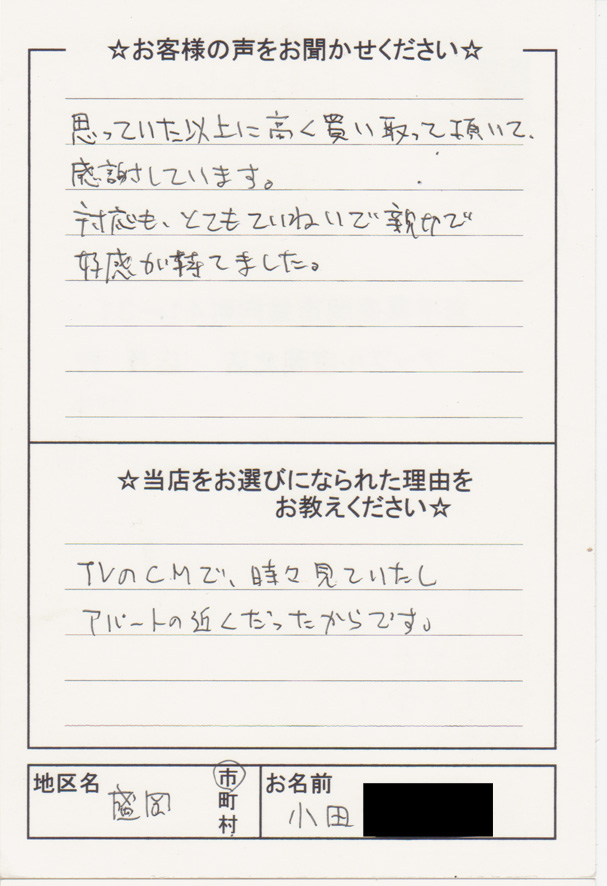 ☆お客様の声をお聞かせください☆
思っていた以上に高く買い取って頂いて、
感謝しています。
対応も、とてもていねいで親切で
好感が持てました。
☆当店をお選びになられた理由を
お教えください☆
TVのCMで、時々見ていたし
アパートの近くだったからです。
地区名 盛岡 市町村 お名前 小田